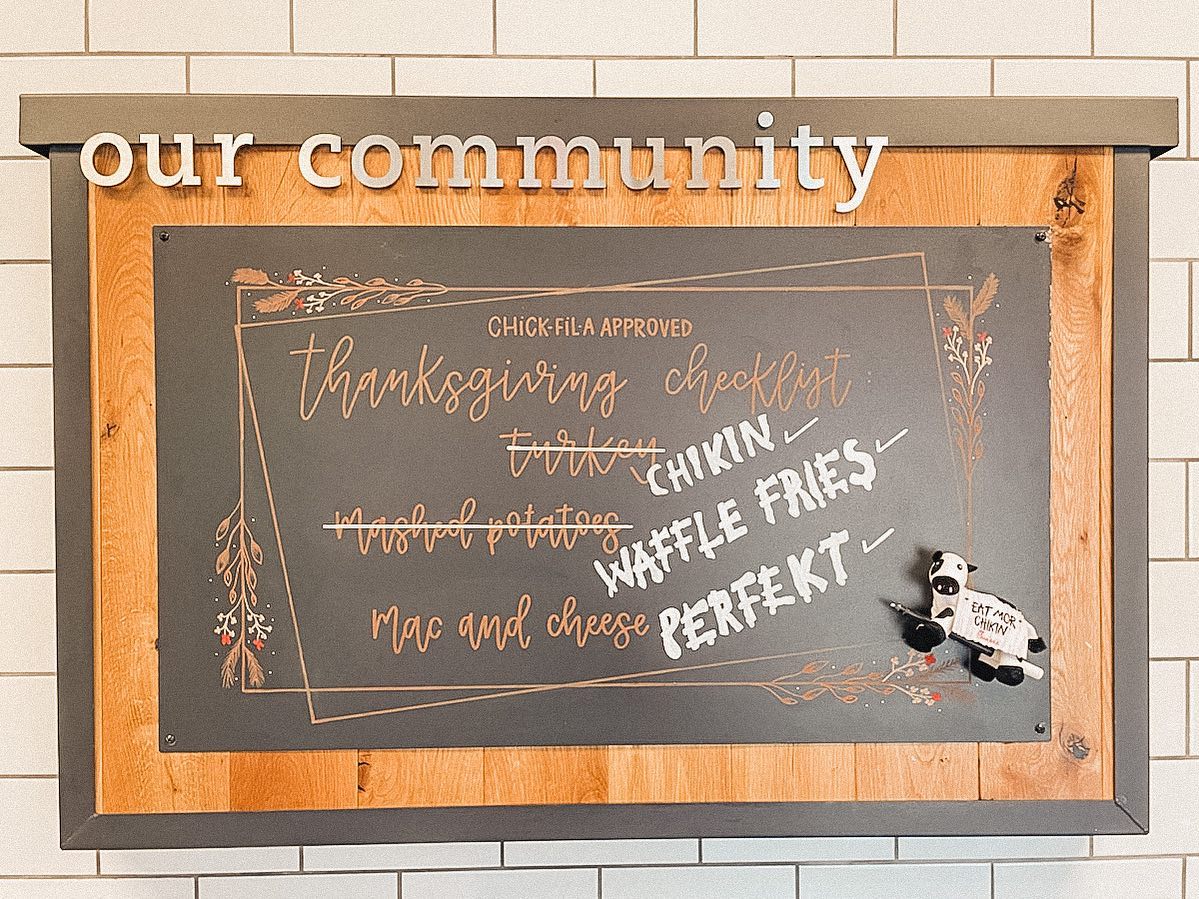 our community
CHiCK-FiL-A APPROVED
thanksgiving checklist
turkey CHIKIN ✓
mashed potatoes WAFFLE FRIES ✓
mac and cheese PERFEKT ✓
EAT MOR
CHIKIN